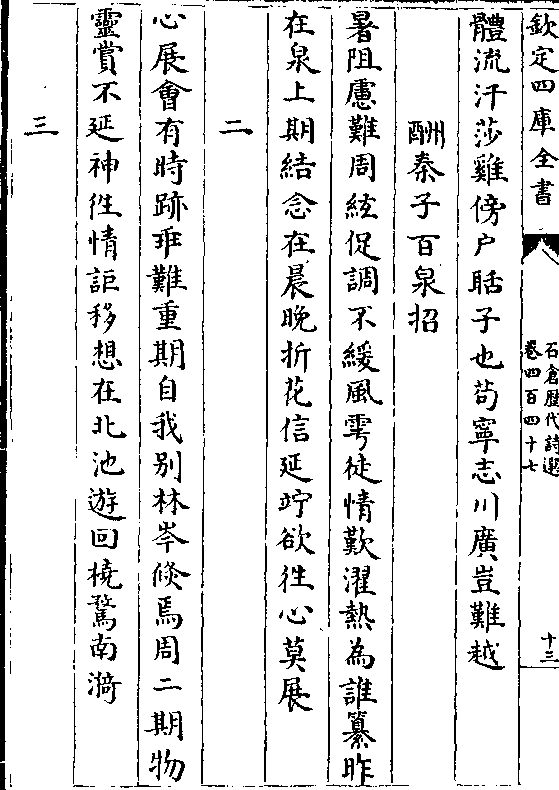 欽定四庫全書
石倉歴代詩選
卷四百四十七
十三
體流汗莎雞傍户聒子也茍寧志川廣豈難越
酬秦子百泉招
暑阻慮難周絃促調不緩風雩徒情歎濯熱為誰纂昨
在泉上期結念在晨晚折花信延竚欲徃心莫展
二
心展會有時跡乖難重期自我别林岑倐焉周二期物
靈賞不延神徃情詎移想在北池遊回橈騖南漪
三